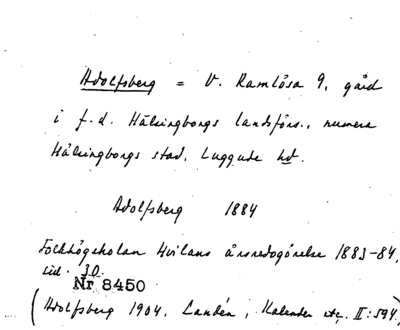 Adolfsberg = V. Ramlösa 9, gård
i f.d. Hälsingborgs landsförs., numera
Hälsingborgs stad, Luggude hd.
Adolfsberg 1884
Folkhögskolan Hvilans årsredogörelse 1883-84,
sid. 30.
Nr 8450
(Adolfsberg 1904, Landén, Kalender etc. II:594.)